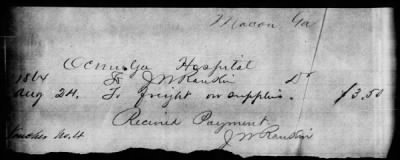 Macon Ga
Ocmulga Hospital
1864 To J W Rankin Dr
Aug 24. To freight on supplies. $3.50
Recieved Payment
J W Rankin
Voucher No. 4